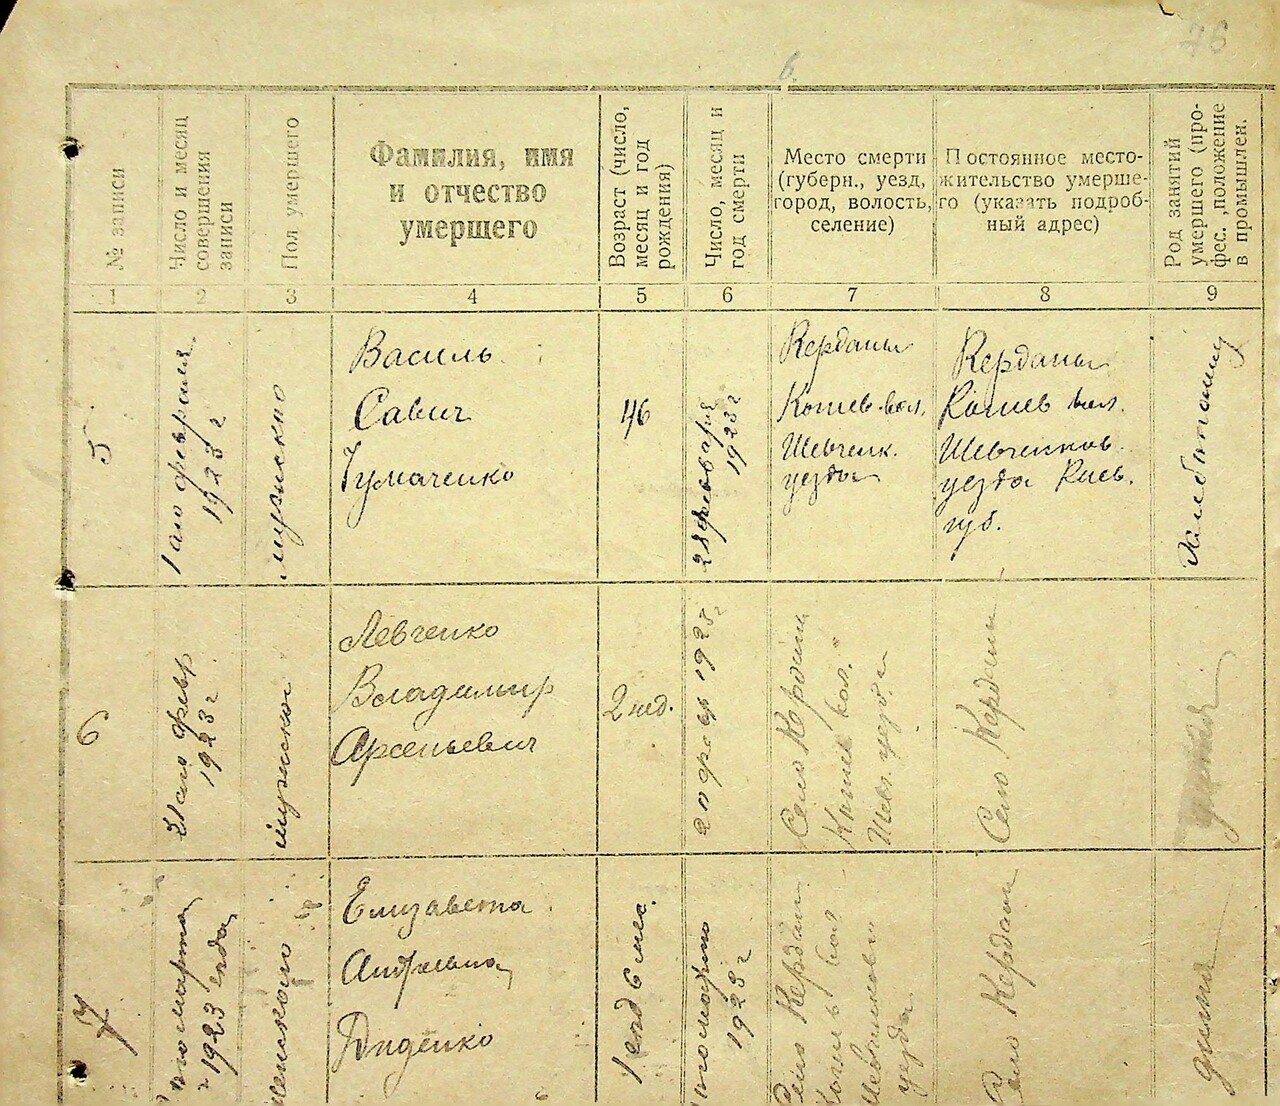 76
в.
№ записи
Число и месяц
совершения
записи
Пол умершего
Фамилия, имя
и отчество
умерщего
Возраст (число,
месяц и год
рождения)
Число, месяц и
год смерти
Место смерти
(губерн., уезд,
город, волость,
селение)
Постоянное место-
жительство умерше-
го (указать подроб-
ный адрес)
Род занятий
умершего (про-
фес. ,положение
в промышлен.
1 2 3 4 5 6 7 8 9
5
1 го февраля
1923 г
мужско
Василь
Савич
Тумаченко
46
28 января
1923 г
Керданы
Кошев. вол.
Шевченк.
уезда
Керданы
Кошев вол.
Шевченков.
уезда Киев.
губ.
Хлебопашец
6
21 го февр
1923 г
мужской
Левченко
Владимир
Арсеньевич
2 нед.
февр 192 г
Село Кердани
Кошев вол.
Шев. уезда
Село Кердани
дитя
7
марта
1923 года
женского
Елизавета
Дидёнко
1 год 6 мес.
марта
1923 г
Село Кердани
вол
Шевченковск
уезда
Село Кердани
дитя